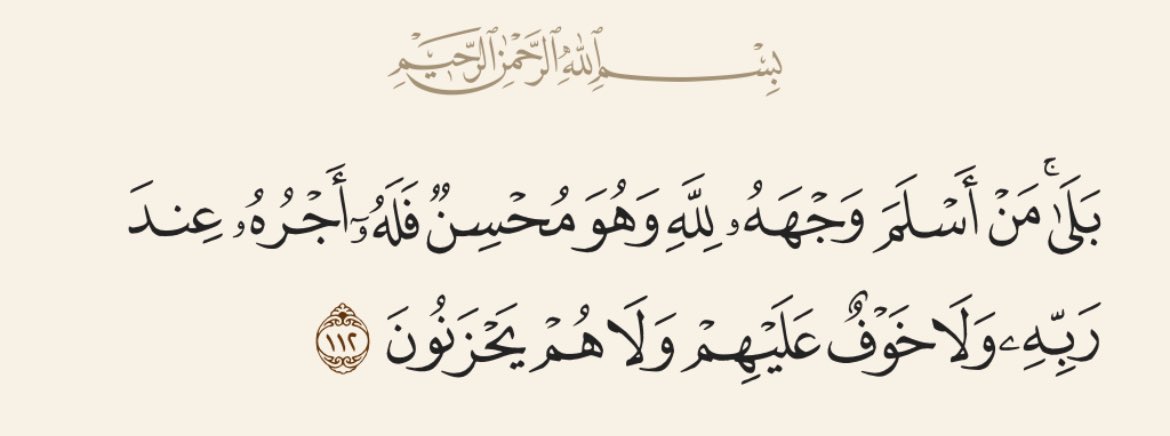 بِسْمِ ٱللَّهِ ٱلرَّحْمَٰنِ ٱلرَّحِيمِ
بَلَىٰۚ مَنْ أَسْلَمَ وَجْهَهُۥ لِلَّهِ وَهُوَ مُحْسِنٌ فَلَهُۥٓ أَجْرُهُۥ عِندَ
رَبِّهِۦ وَلَا خَوْفٌ عَلَيْهِمْ وَلَا هُمْ يَحْزَنُونَ ١١٢